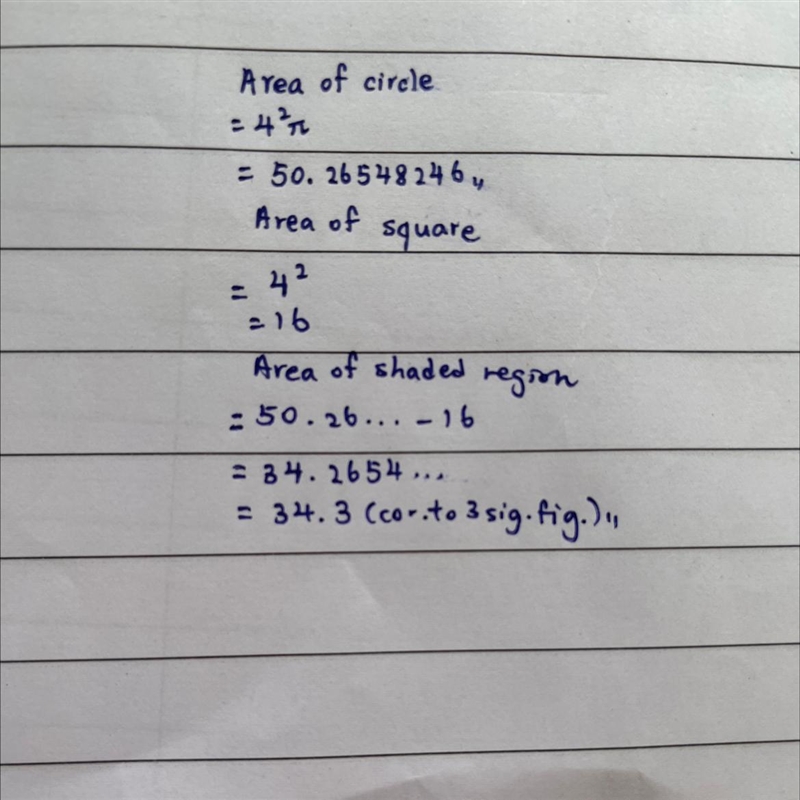 Area of circle
= 4²π
= 50.26548246〃
Area of square
= 4²
= 16
Area of shaded region
= 50.26... - 16
= 34.2654...
= 34.3 (cor. to 3 sig. fig.)〃